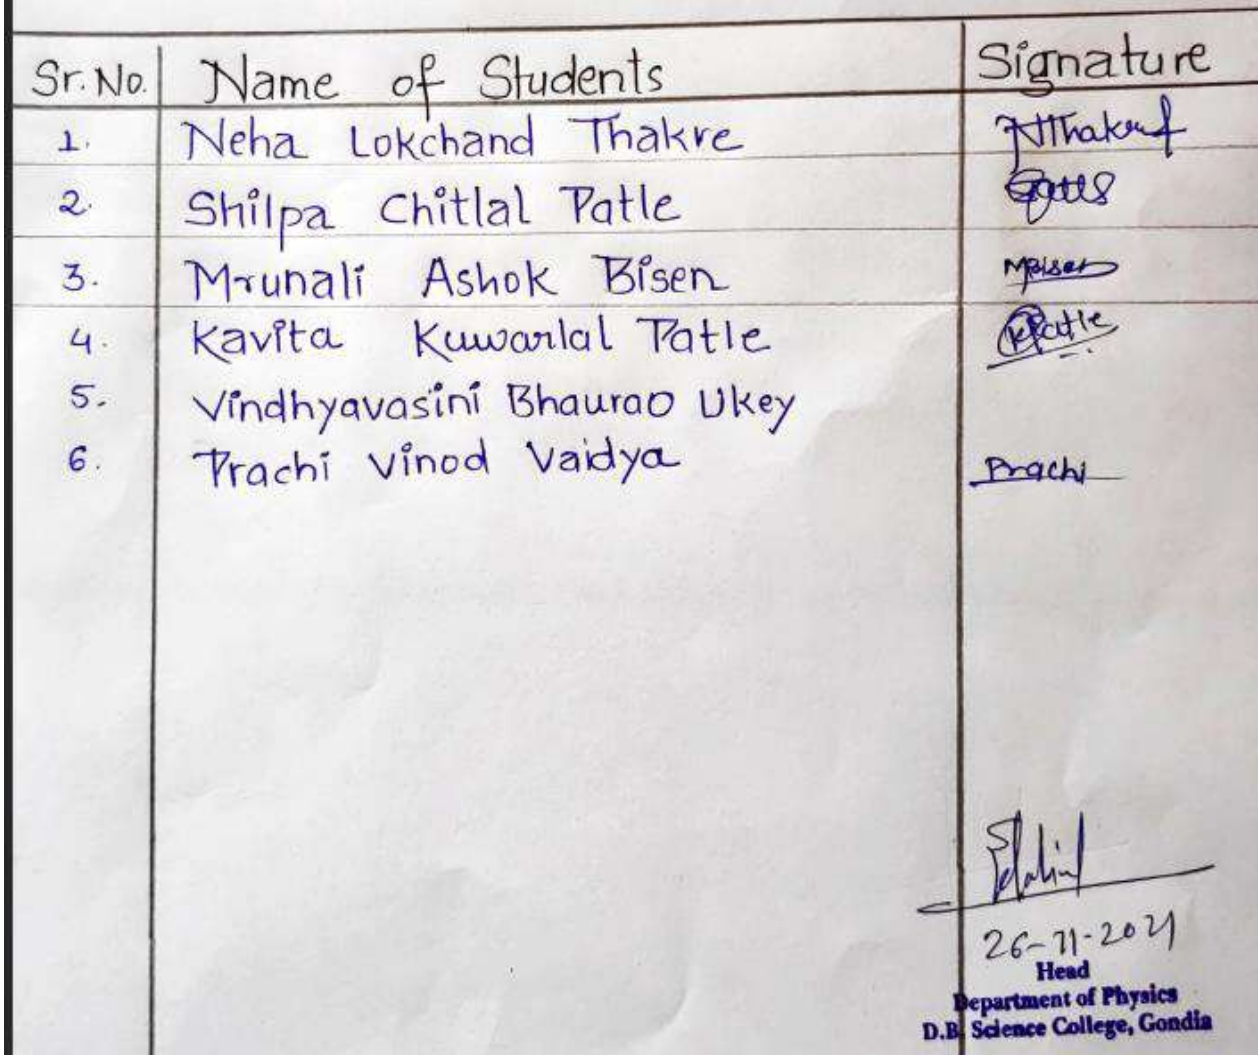 Sr. No. Name of Students Signature
1. Neha Lokchand Thakre NThakre
2. Shilpa Chitlal Patle
3. Mrunali Ashok Bisen MBisen
4. Kavita Kuwarlal Patle KPatle
5. Vindhyavasini Bhaurao Ukey
6. Prachi Vinod Vaidya Prachi
26-11-2021
Head
Department of Physics
D.B. Science College, Gondia